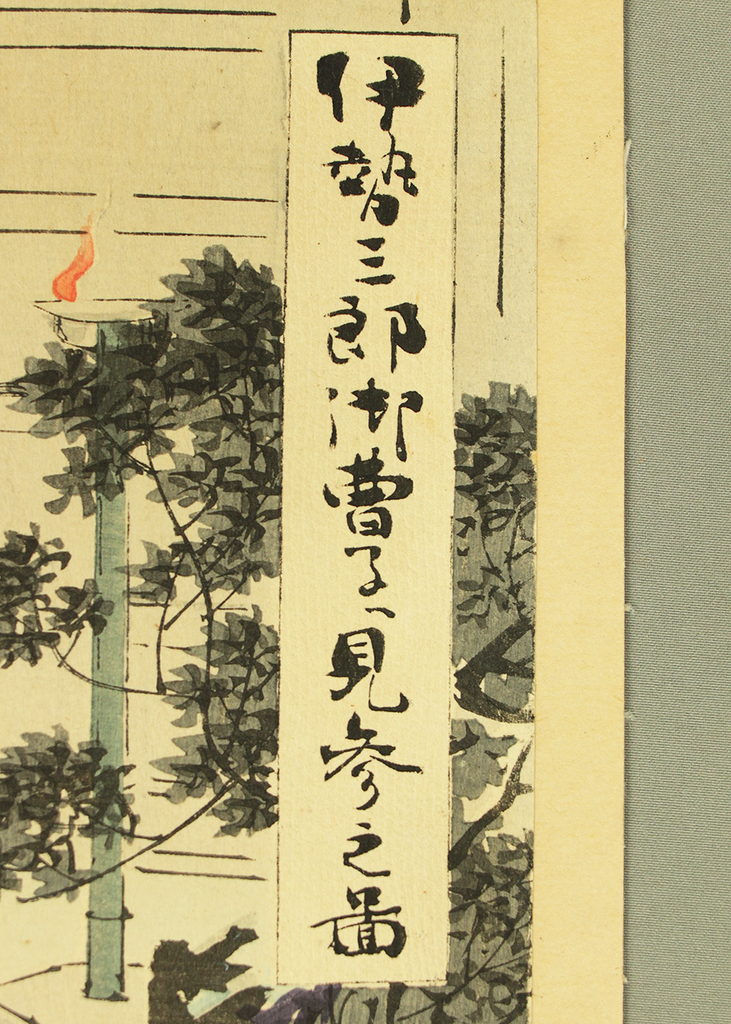 伊勢三郎御曹子へ見参之啚